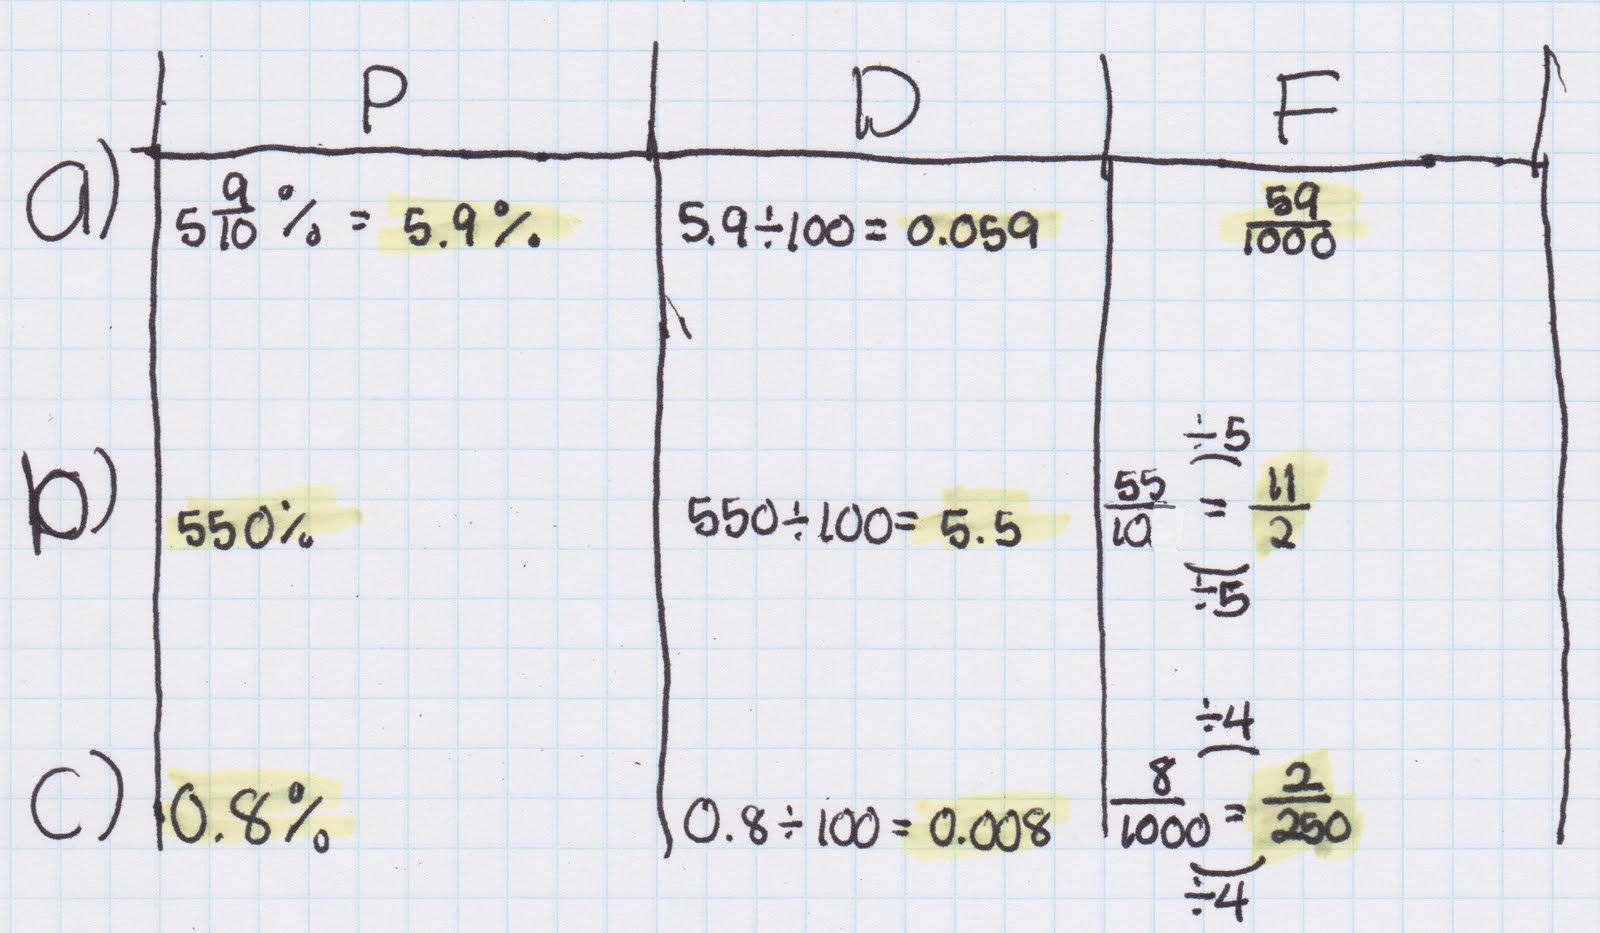 P D F
a) 5 9/10 % = 5.9% 5.9÷100 = 0.059 59/1000
÷5
b) 550% 550÷100= 5.5 55/10 = 11/2
÷5
÷4
c) 0.8% 0.8÷100 = 0.008 8/1000 = 2/250
÷4